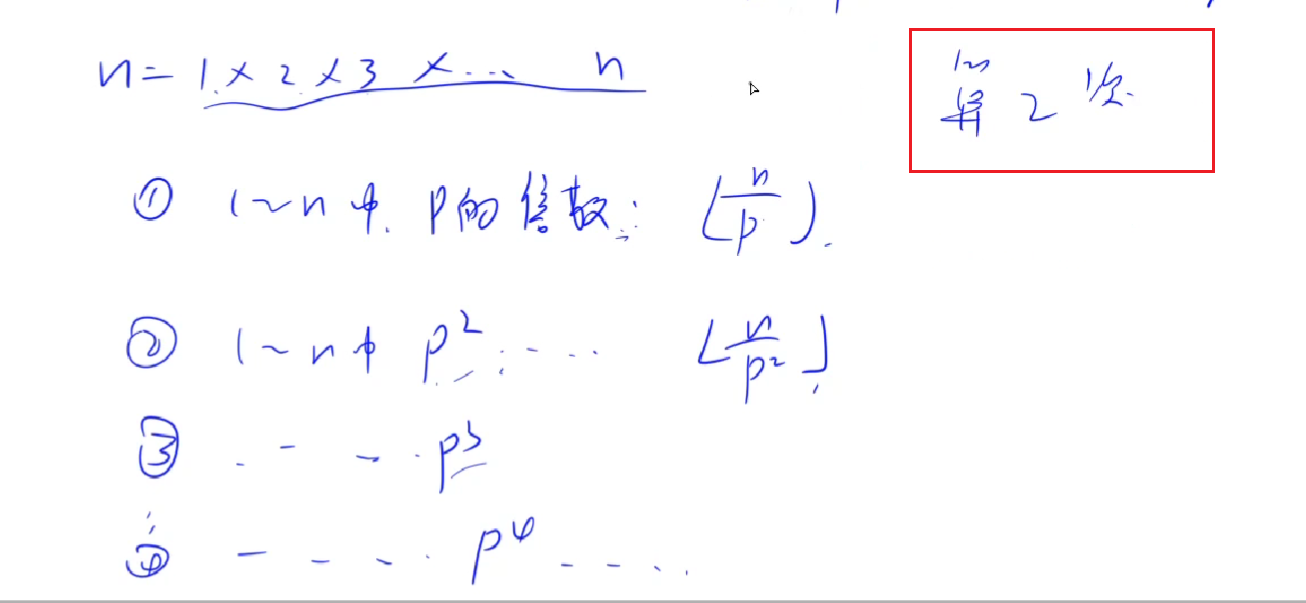 n = 1 × 2 × 3 × ... n
算 2 次.
① 1~n 中. p的倍数: ⌊n/p⌋.
② 1~n 中 p²: .... ⌊n/p²⌋,
③ . - - . p³
④ - - - . p⁴ - - - ..